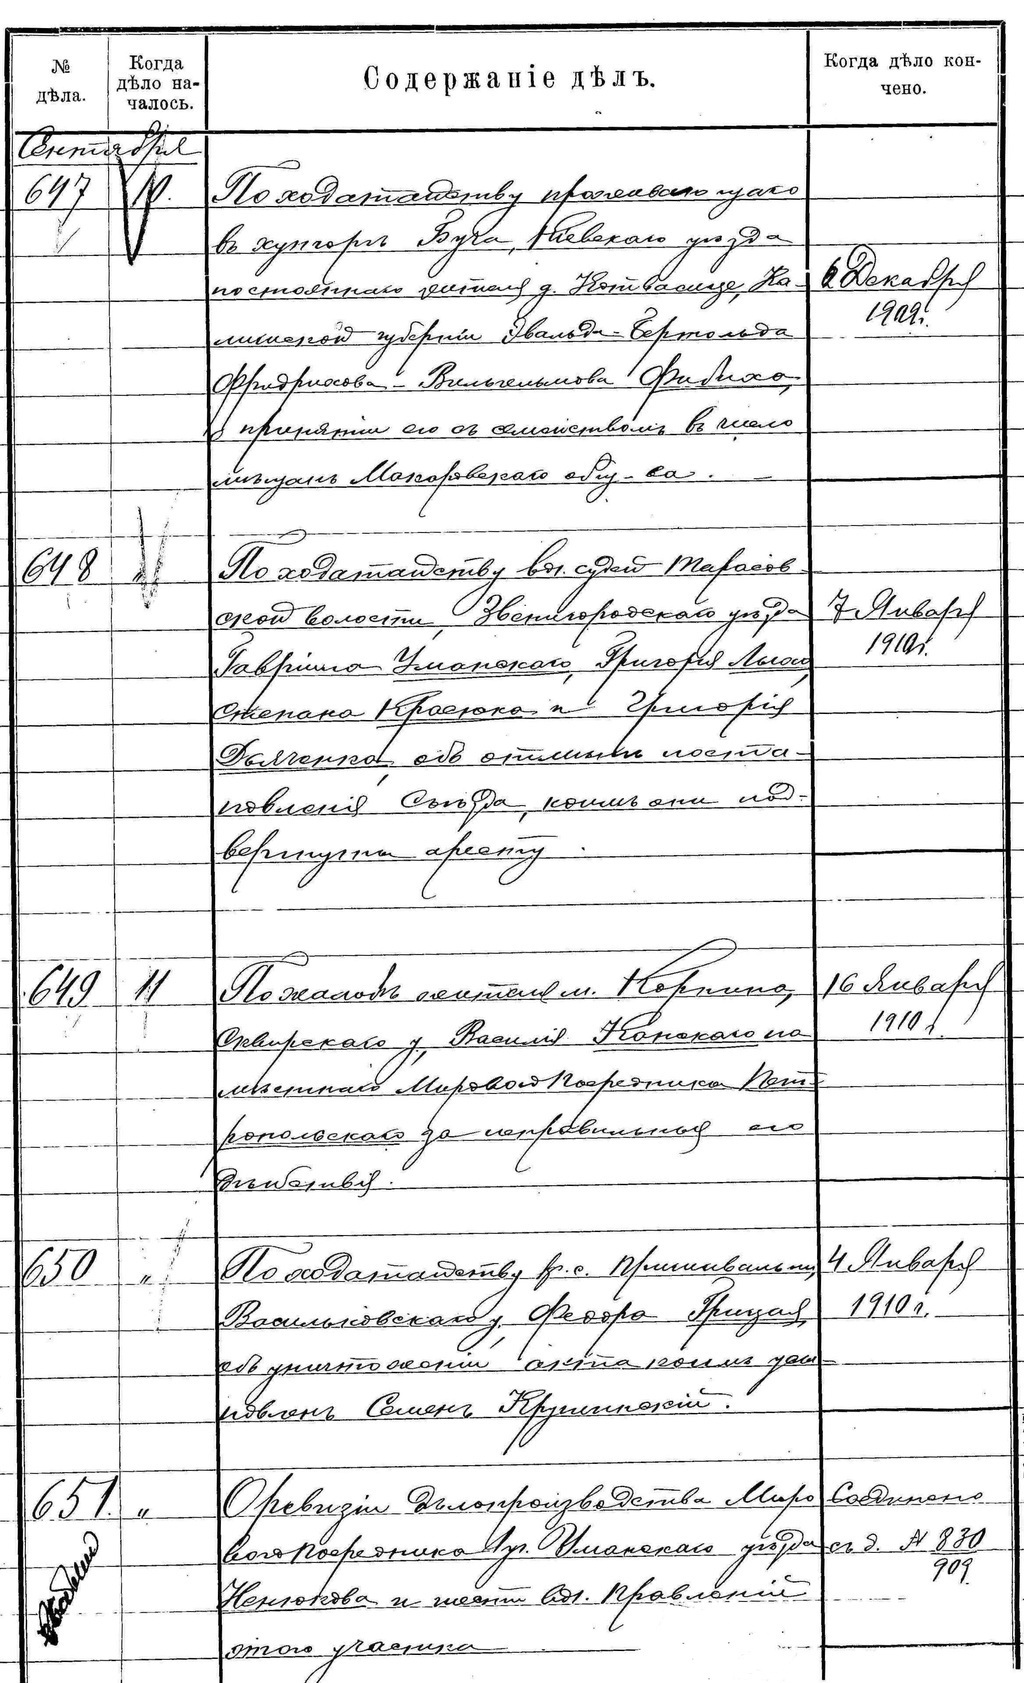 № дѣла.
Когда дѣло на-чалось.
Содержаніе дѣлъ.
Когда дѣло кон-чено.
Сентября
647 10.
По ходатайству проживающаго
въ хуторѣ Буча, Кіевскаго уѣзда
постояннаго жителя д. Ка-
лишской губерніи Эвальда-Бертольда
Фридрихова-Вильгельмова Фибиха,
о принятіи его съ семействомъ въ число
мѣщанъ Макаровскаго общ-ва.
6 Декабря
1909 г.
648 „
По ходатайству вол. судей Тарасов-
ской волости, Звенигородскаго уѣзда
Гавріила Уманскаго, Григорія
Степана Красюка и Григорія
Дьяченка, объ отмѣнѣ поста-
новленія Съѣзда, коимъ они под-
вергнуты аресту.
7 Января
1910 г.
649 11
По жалобѣ жителя м. Корнина,
Сквирскаго у. Василія Канскаго на
мѣстнаго Мироваго Посредника Пет-
ропольскаго за неправильныя его
дѣйствія.
16 Января
1910 г.
650 „
По ходатайству кр. с.
Васильковскаго у. Федора Грицая,
объ уничтоженіи акта коимъ усы-
новленъ Семенъ
4 Января
1910 г.
651. „
О ревизіи дѣлопроизводства Миро
вого Посредника 1 уч. Уманскаго уѣзда
Ненюкова и шести вол. правленій
этого участка
Соединено
съ д. № 830
909